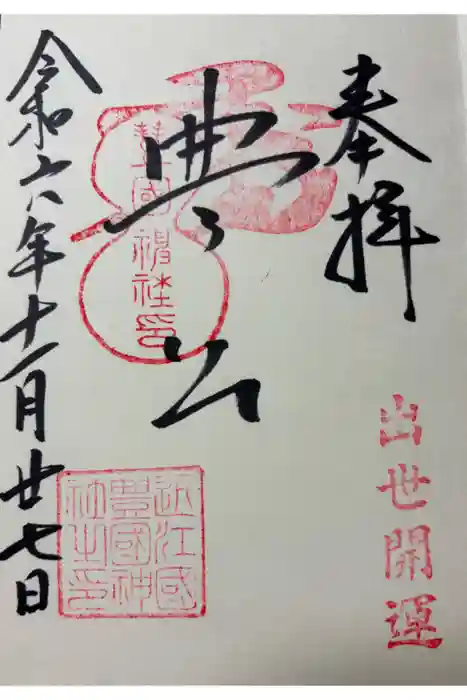 奉拝
出世開運
豊公
豊國神社印
近江國
豊國神
社之印
令和六年十一月廿七日